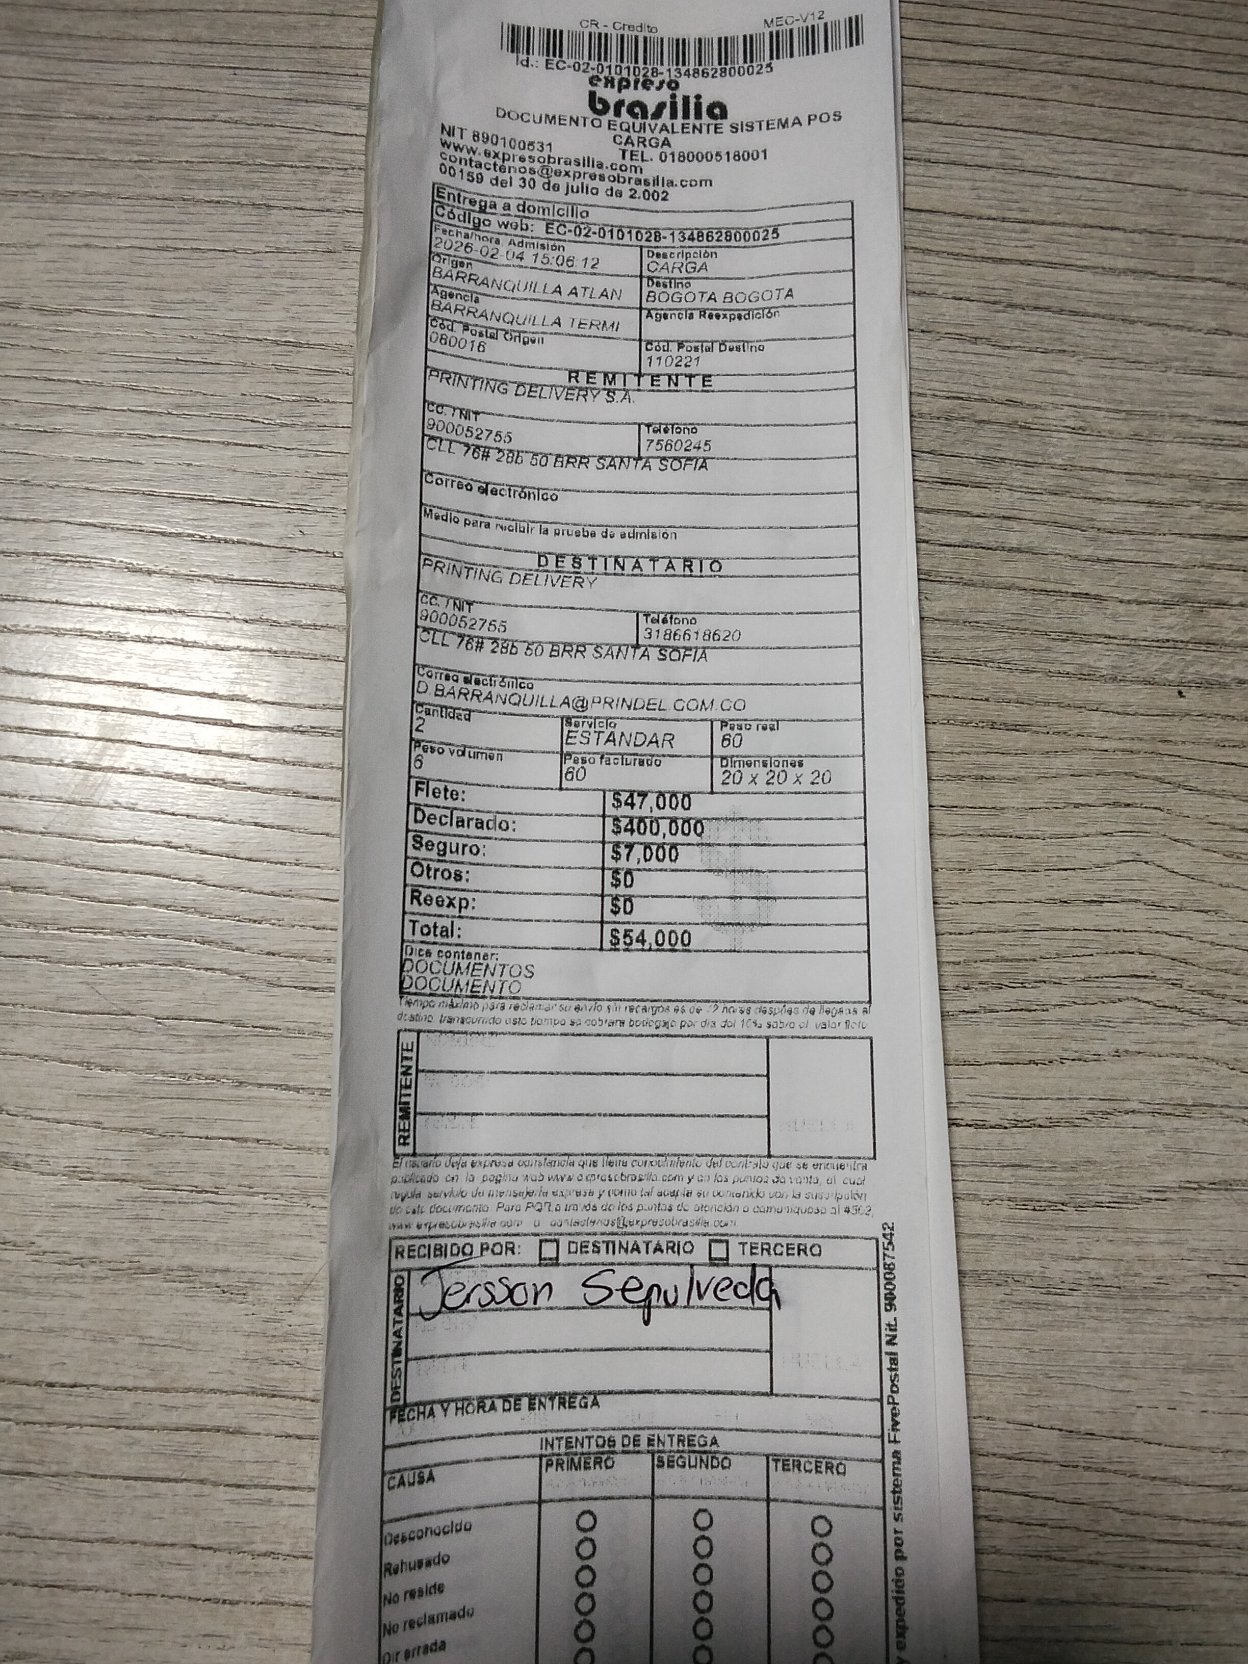 CR - Credito MEC-V12
Id.: EC-02-0101028-134862800025
expreso
brasilia
DOCUMENTO EQUIVALENTE SISTEMA POS
CARGA
NIT 890100531 TEL. 018000518001
www.expresobrasilia.com
contactenos@expresobrasilla.com
00159 del 30 de julio de 2.002
Entrega a domicilio
Código web: EC-02-0101028-134862800025
Fecha/hora Admisión Descripción
2026-02-04 15:06:12 CARGA
Origen Destino
BARRANQUILLA ATLAN BOGOTA BOGOTA
Agencia Agencia Reexpedición
BARRANQUILLA TERMI
Cód. Postal Origen Cód. Postal Destino
080016 110221
REMITENTE
PRINTING DELIVERY S.A.
CC. / NIT Teléfono
900052755 7560245
CLL 76# 28b 50 BRR SANTA SOFIA
Correo electrónico
Medio para recibir la prueba de admisión
DESTINATARIO
PRINTING DELIVERY
CC. / NIT Teléfono
900052755 3186618620
CLL 76# 28b 50 BRR SANTA SOFIA
Correo electrónico
D.BARRANQUILLA@PRINDEL.COM.CO
Cantidad Servicio Peso real
2 ESTANDAR 60
Peso volumen Peso facturado Dimensiones
6 60 20 x 20 x 20
Flete: $47,000
Declarado: $400,000
Seguro: $7,000
Otros: $0
Reexp: $0
Total: $54,000
Dice contener:
DOCUMENTOS
DOCUMENTO
Tiempo máximo para reclamar su envío sin recargos es de 72 horas después de llegada al
destino, transcurrido este tiempo se cobrara bodegaje por día del 10% sobre el valor flete
REMITENTE
El usuario deja expresa constancia que tiene conocimiento del contrato que se encuentra
publicado en la pagina web www.expresobrasilia.com y en los puntos de venta, el cual
regula servicio de mensajería expresa y como tal acepta su contenido con la suscripción
de este documento. Para PQR a través de los puntos de atención o comuniquese al #502,
www.expresobrasilia.com o contactenos@expresobrasilia.com
RECIBIDO POR: DESTINATARIO TERCERO
DESTINATARIO
Jersson Sepulveda
FECHA Y HORA DE ENTREGA
INTENTOS DE ENTREGA
CAUSA PRIMERO SEGUNDO TERCERO
Desconocido
Rehusado
No reside
No reclamado
Dir errada
y expedido por sistema FivePostal Nit. 900087542